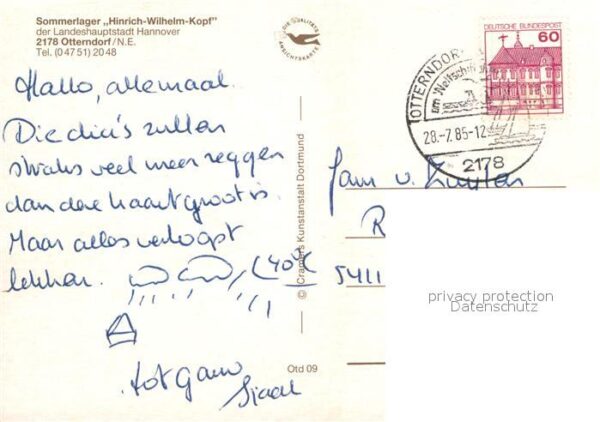 Sommerlager „Hinrich-Wilhelm-Kopf"
der Landeshauptstadt Hannover
2178 Otterndorf/N.E.
Tel. (0 47 51) 20 48
DIE QUALITÄTS
ANSICHTSKARTE
DEUTSCHE BUNDESPOST
60
OTTERNDORF
28.-7.85-12
2178
Hallo, allemaal.
Die dia's zullen
straks veel meer zeggen
dan deze kaart groot is.
Maar alles verloopt
lekker.
40°C
tot gauw
© Cramers Kunstanstalt Dortmund
Otd 09
Fam v.
R
5411
privacy protection
Datenschutz